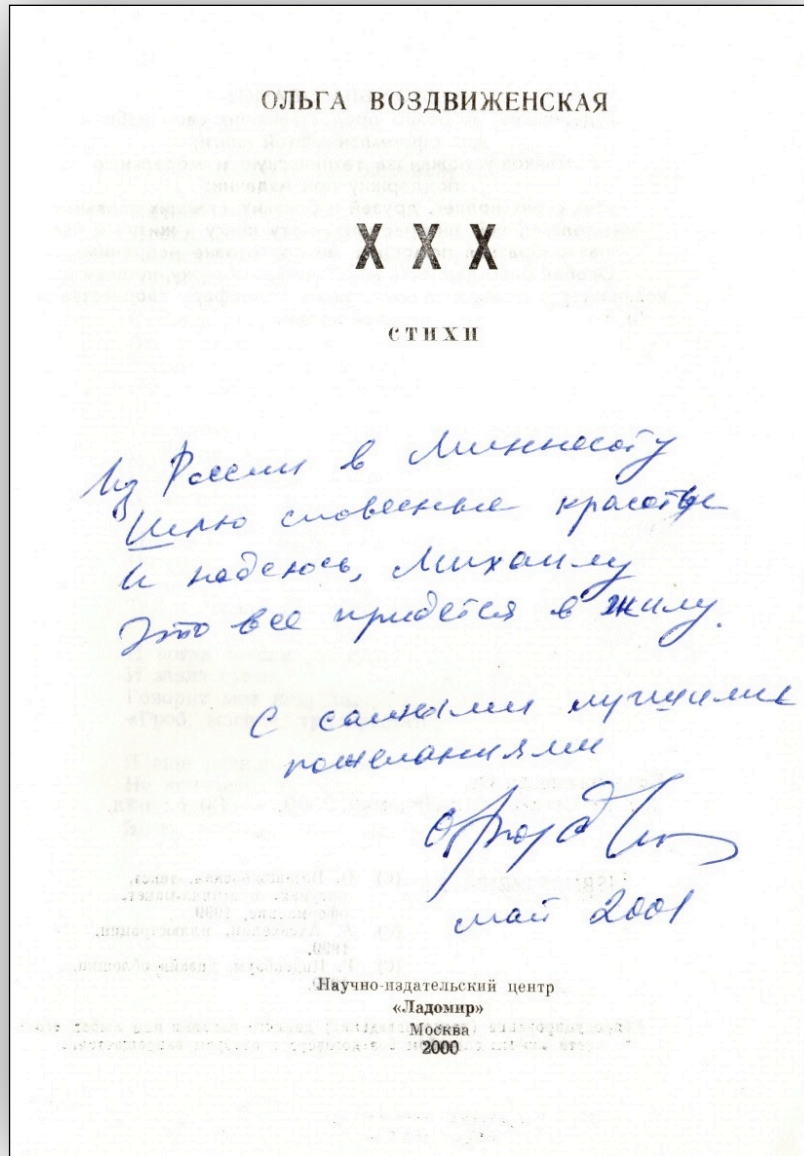 ОЛЬГА ВОЗДВИЖЕНСКАЯ
X X X
СТИХИ
Из России в Миннесоту
Шлю словесные красоты
И надеюсь, Михаилу
Это все придется в жилу.
С самыми лучшими
пожеланиями
май 2001
Научно-издательский центр
«Ладомир»
Москва
2000